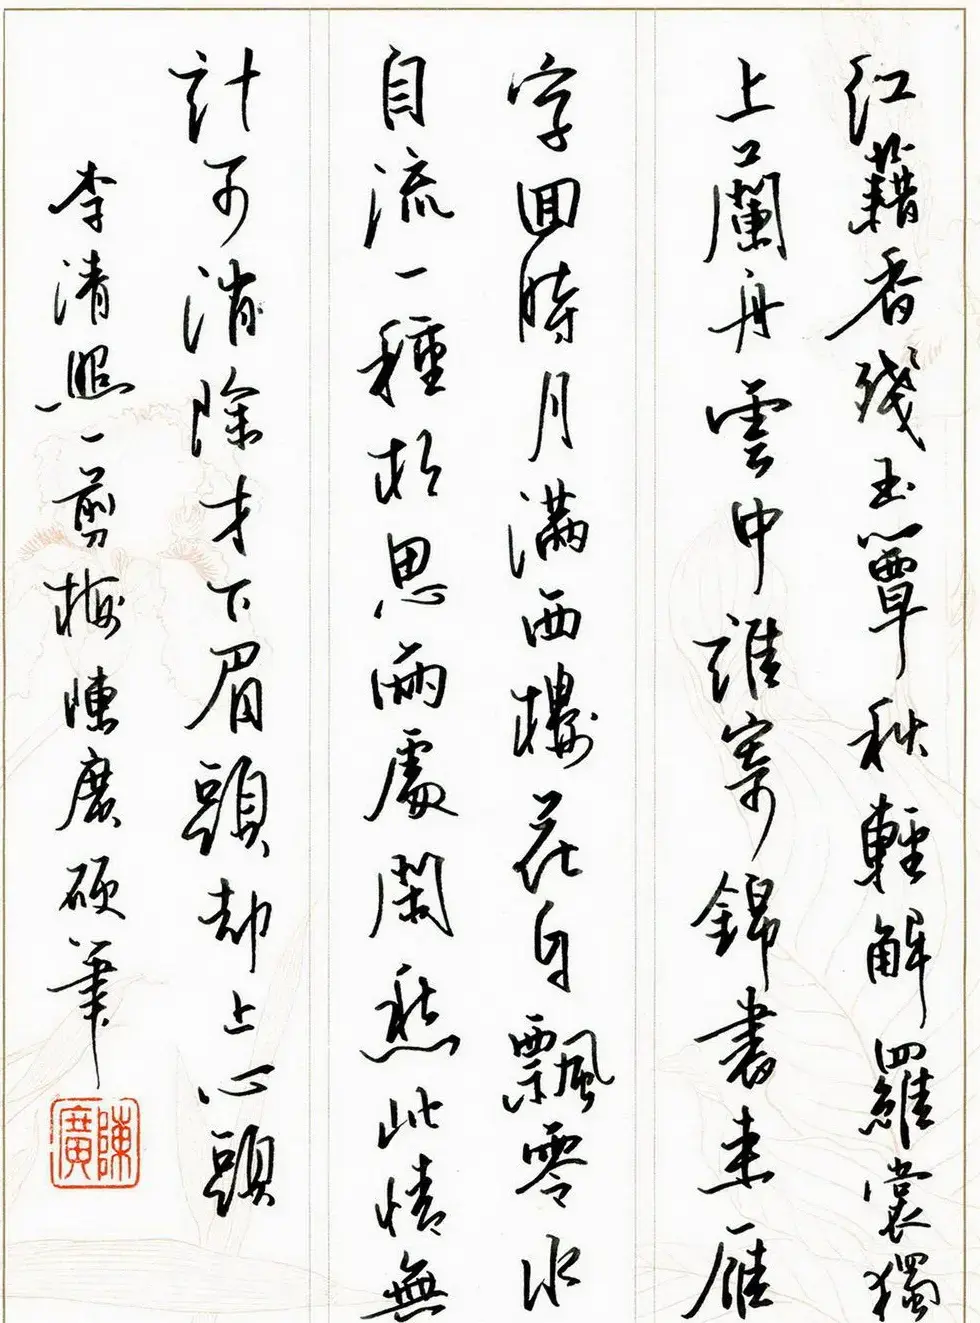 紅藕香殘玉簟秋輕解羅裳獨
上蘭舟雲中誰寄錦書來雁
字回時月滿西樓花自飄零水
自流一種相思兩處閑愁此情無
計可消除才下眉頭却上心頭
李清照一剪梅陳廣碩筆
陳廣